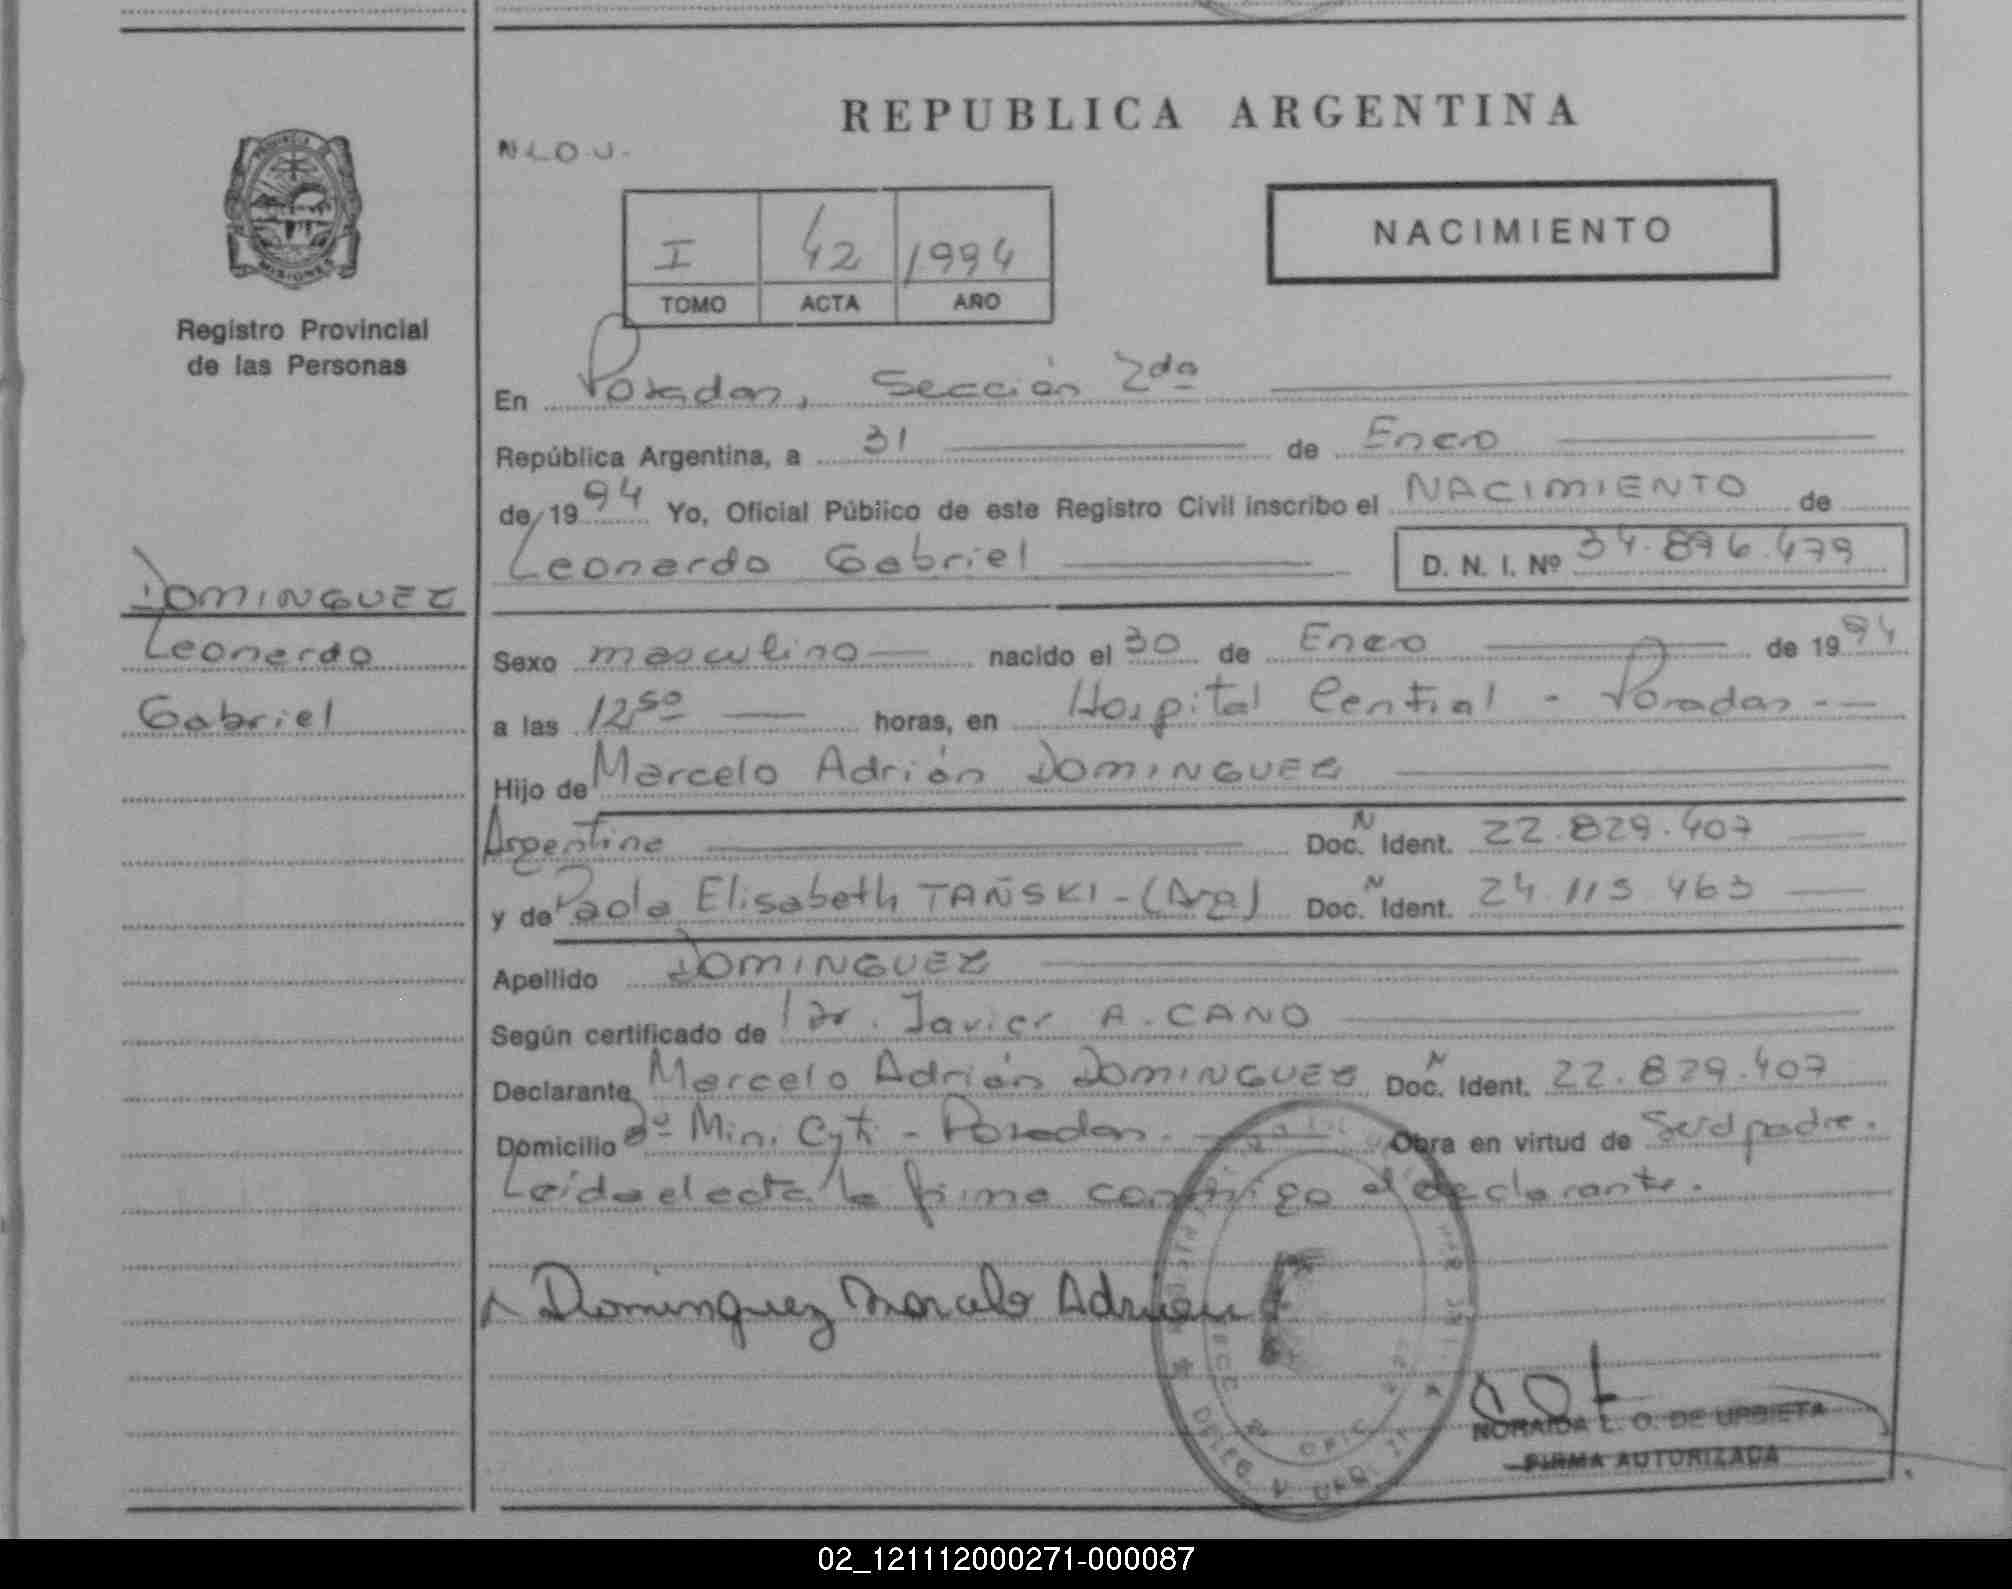 REPUBLICA ARGENTINA
N.L.O.U.
NACIMIENTO
I 42 1994
TOMO ACTA AÑO
PROVINCIA
MISIONES
Registro Provincial
de las Personas
En Posadas, Sección 2da
República Argentina, a 31 de Enero
de 1994 Yo, Oficial Público de este Registro Civil inscribo el NACIMIENTO de
Leonardo Gabriel D. N. I. Nº 34.896.479
DOMINGUEZ
Leonardo
Gabriel
Sexo masculino nacido el 30 de Enero de 1994
a las 12,50 horas, en Hospital Central - Posadas --
Hijo de Marcelo Adrián DOMINGUEZ
Argentino Doc. N Ident. 22.829.407
y de Paola Elisabeth TAÑSKI - (Arg) Doc. N Ident. 24.115.463
Apellido DOMINGUEZ
Según certificado de Dr. Javier A. CANO
Declarante Marcelo Adrián DOMINGUEZ Doc. N Ident. 22.829.407
Domicilio Bº Min. Cyt. - Posadas. Obra en virtud de Ser el padre.
Leída el acta la firma conmigo el declarante.
Dominguez Marcelo Adrian
NORAIDA L. O. DE URBIETA
FIRMA AUTORIZADA
02_121112000271-000087